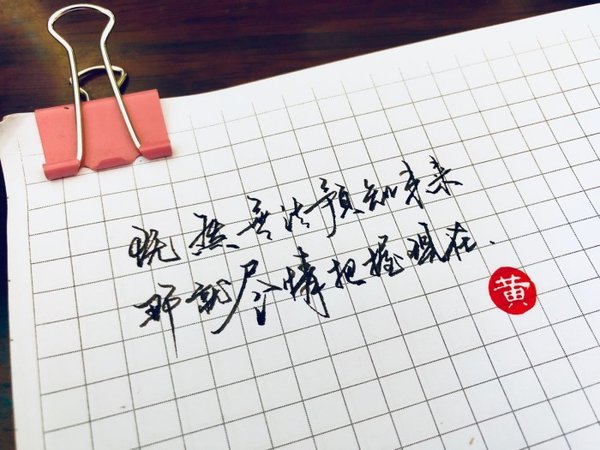 既然无法预知未来
那就尽情把握现在.
黄